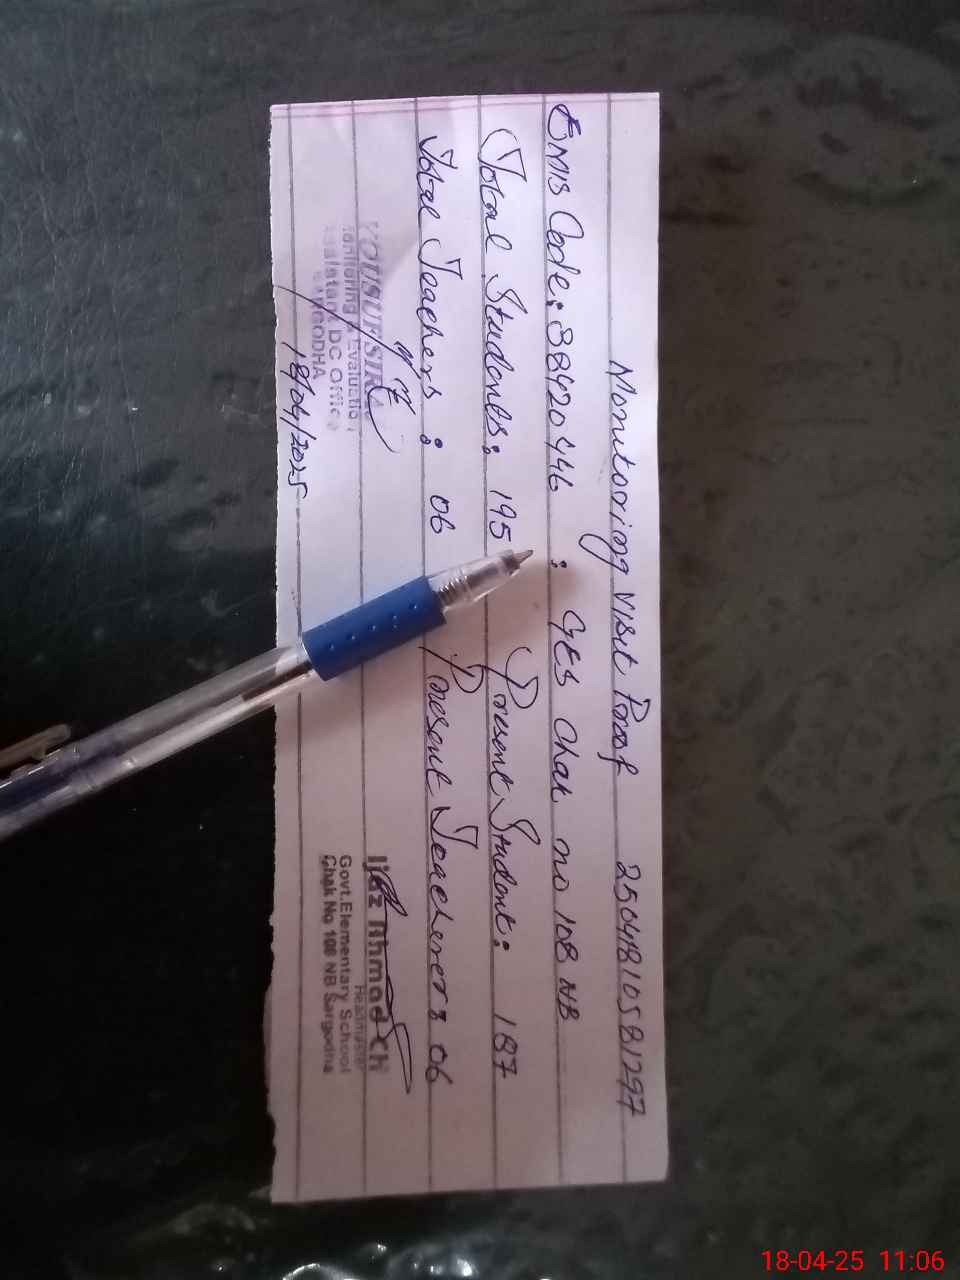 Monitoring Visit Proof 25041810581297
EMIS Code: 38420446 : GES Chak no 108 NB
Total Students: 195 Present Student: 187
Total Teachers : 06 Present Teacherers 06
YOUSUF SIRAJ
Monitoring & Evaluation
Assistant DC Office
SARGODHA
18/04/2025
Ijaz Ahmad Ch
Headmaster
Govt.Elementary School
Chak No 108 NB Sargodha
18-04-25 11:06